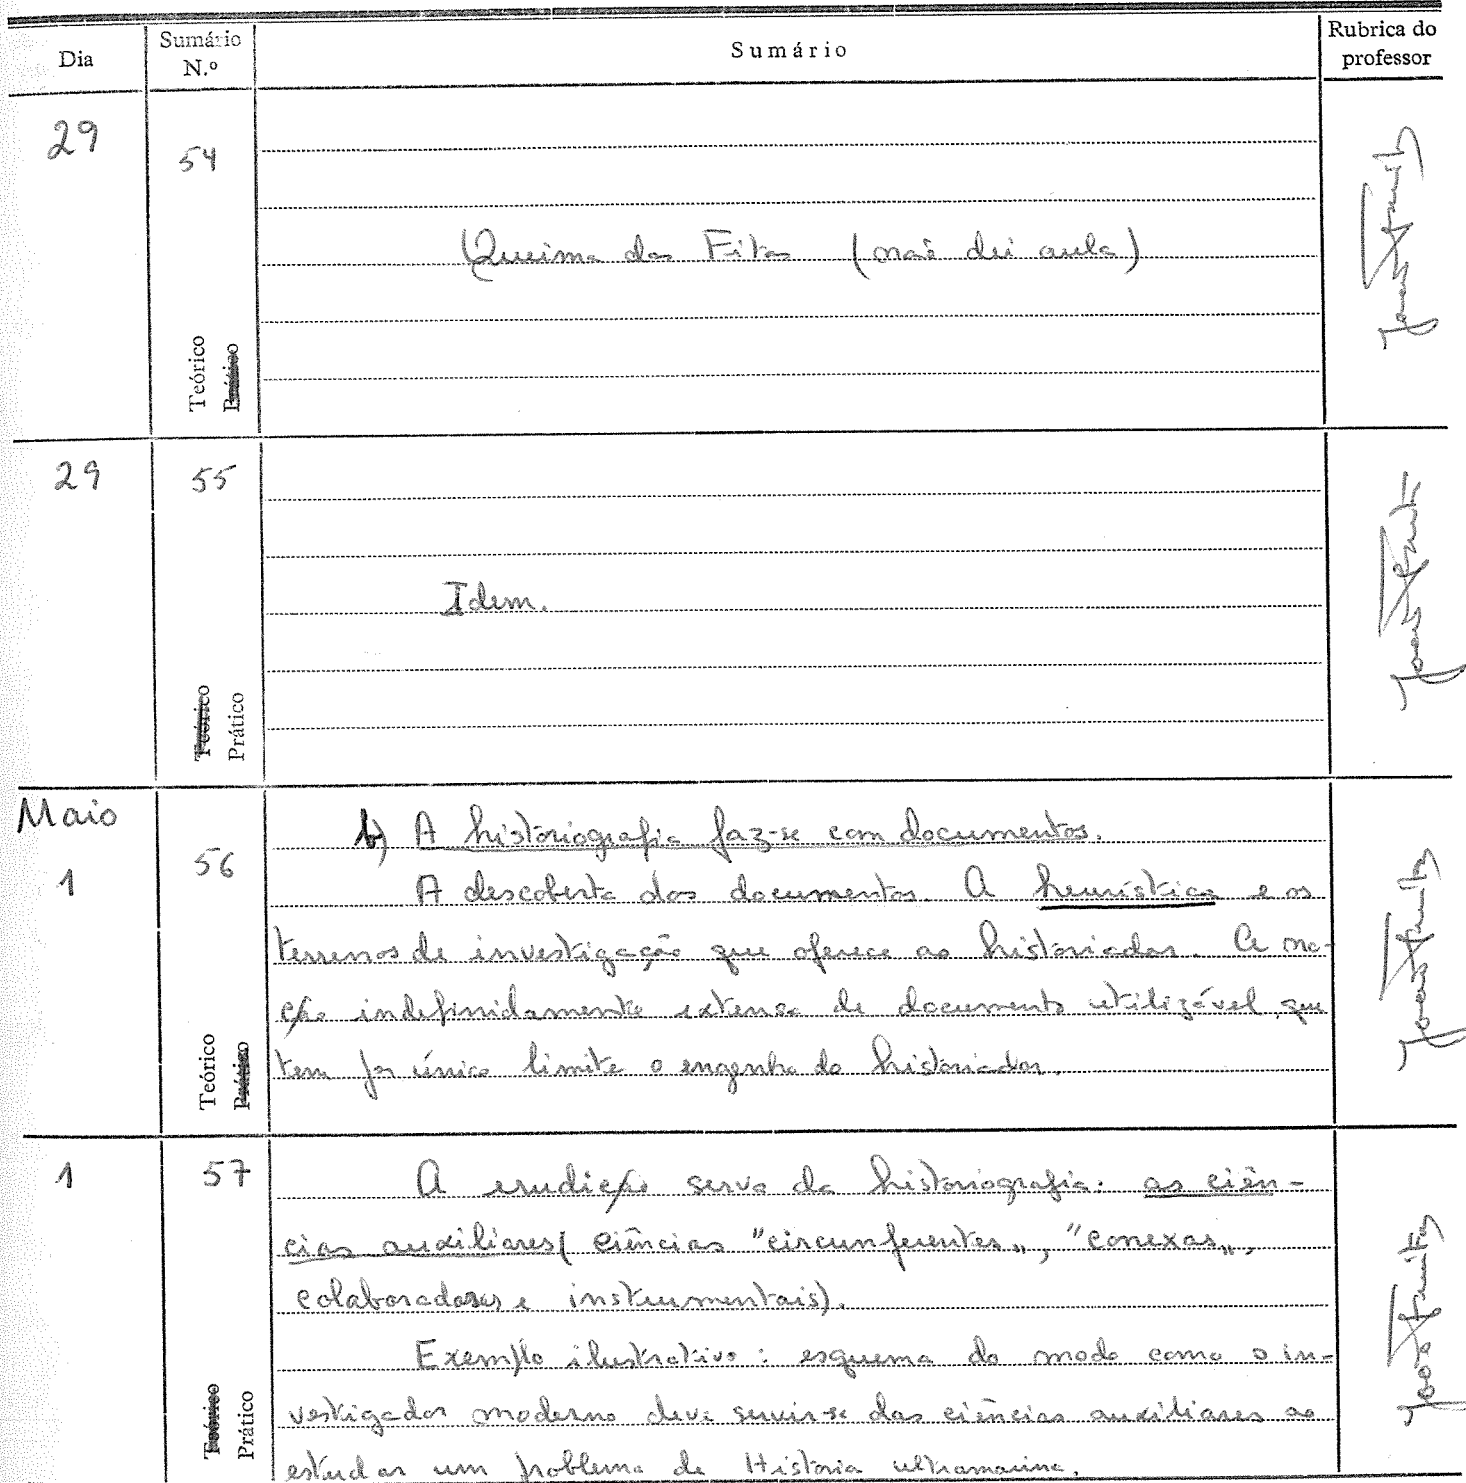 Dia
Sumário
N.º
Sumário
Rubrica do
professor
29
54
Queima das Fitas (não dei aula)
Teórico
Prático
29
55
Idem.
Teórico
Prático
Maio
1
56
b) A historiografia faz-se com documentos.
A descoberta dos documentos. A heurística e os
terrenos de investigação que oferece ao historiador. A no-
ção indefinidamente extensa de documento utilizável, que
tem por único limite o engenho do historiador.
Teórico
Prático
1
57
A erudição serva da historiografia: as ciên-
cias auxiliares (ciências "circunferentes„, "conexas„,
colaboradoras e instrumentais).
Exemplo ilustrativo: esquema do modo como o in-
vestigador moderno deve servir-se das ciências auxiliares ao
estudar um problema de História ultramarina.
Teórico
Prático